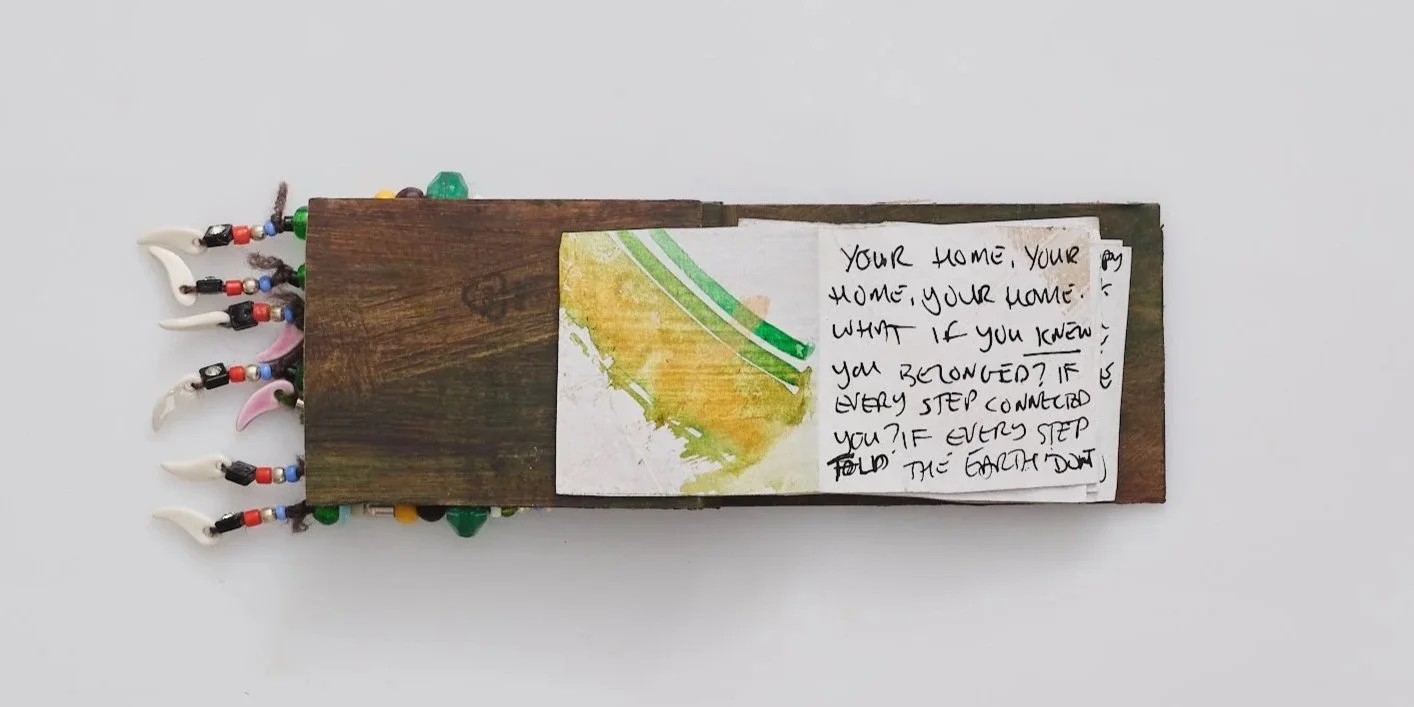 YOUR HOME, YOUR
HOME, YOUR HOME.
WHAT IF YOU KNEW
YOU BELONGED? IF
EVERY STEP CONNECTED
YOU? IF EVERY STEP
TOLD THE EARTH DON'T